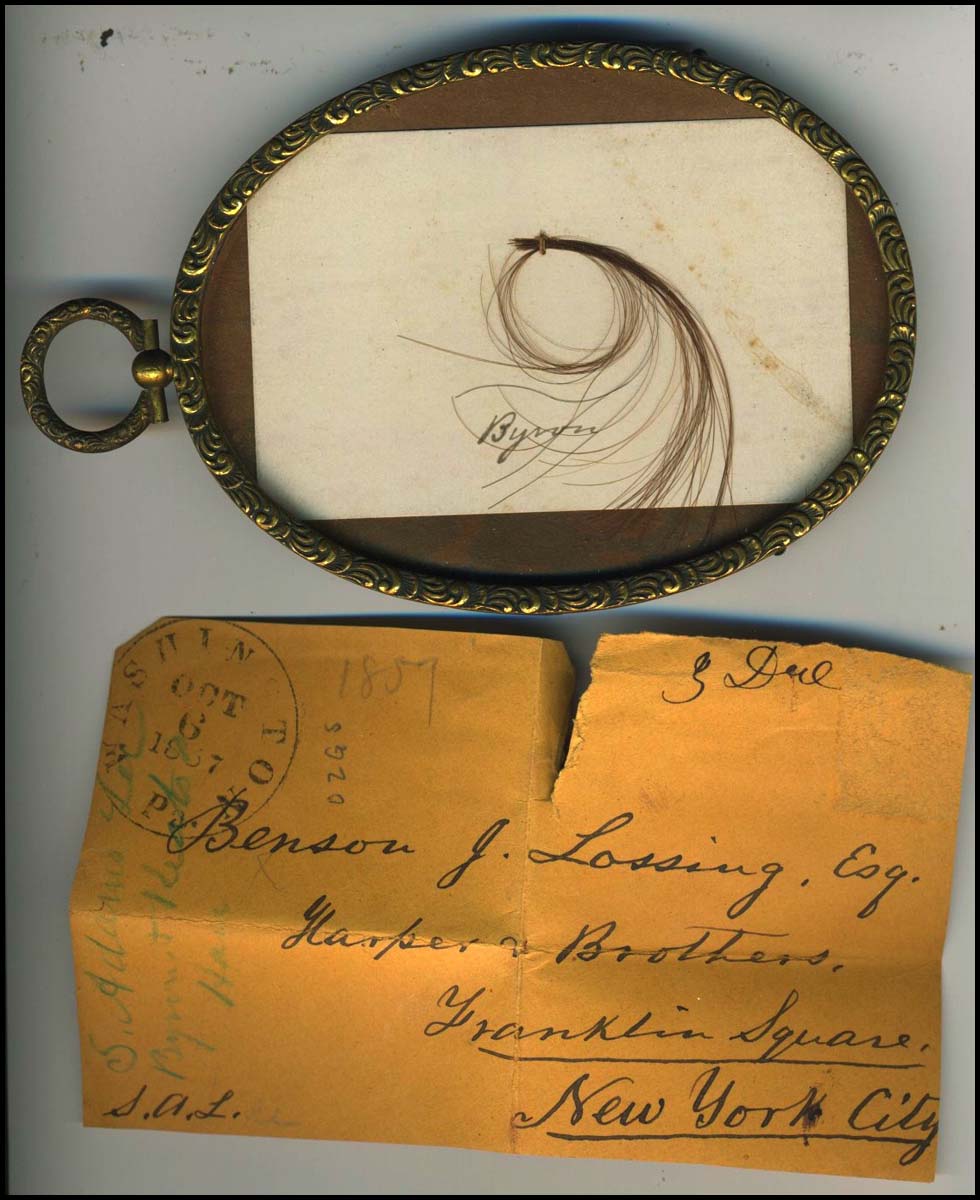 Byron
WASHINGTON
OCT
1857
1857
3 Due
Benson J. Lossing, Esq.
Harper & Brothers,
Franklin Square,
New York City
S. Adams Lee
Byron & Keats
Hair
S.A.L.